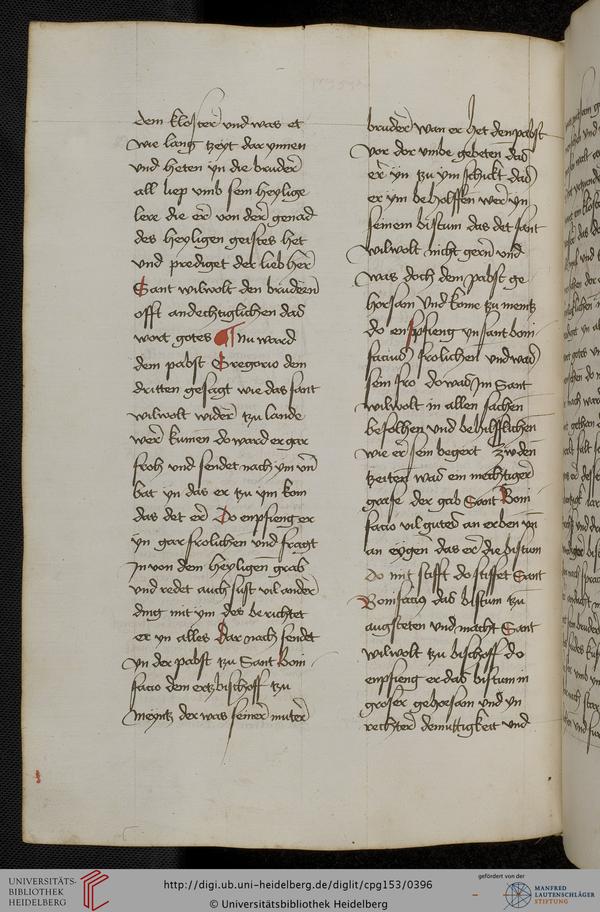 dem kloster und was et
wie lang tzeyt dar ynnen
und heten yn die bruder
all liep umb sein heylige
lere die er von der genad
des heyligen geistes het
und prediget der lieb her
Sant wilwolt den brudern
offt andechtiglichen das
wort gotes ¶ Nu ward
dem pabst Gregorio dem
dritten gesagt wie das sant
wilwolt wider tzu lande
wer kumen do ward er gar
froh und sendet nach ym un
bat yn das er tzu ym kom
das det er Do enpfieng er
yn gar frolichen und fragt
In von dem heyligen grab
und redet auch sust vil ander
ding mit ym des berichtet
er yn alles Dar nach sendet
yn der pabst tzu Sant Boni
facio dem ertzbischoff tzu
Meyntz der was seiner muter
bruder wan er het den pabst
vor dor umbe gebeten das
er yn tzu ym schickt das
er ym beholffen wer yn
seinem bistum das det sant
wilwolt nicht gern und
was doch dem pabst ge
horsam Und kome tzu mentz
do enpfieng yn sant boni
facius frolichen und was
sein fro do was Im Sant
wilwolt in allen sachen
befolhen und behilfflichen
wie er sein begert Zw den
tzeiten was ein mechtiger
grafe der gab Sant Boni
facio vil gutes an erben un
an eygen das er die bistum
do mit stifft do stiffet Sant
Bonifacius das bistum tzu
augsteten und macht Sant
wilwolt tzu bischoff do
enpfieng er das bistum in
groser gehorsam und yn
rechter demuttigkeit und
UNIVERSITÄTS-
BIBLIOTHEK
HEIDELBERG
http://digi.ub.uni-heidelberg.de/diglit/cpg153/0396
© Universitätsbibliothek Heidelberg
gefördert von der
MANFRED
LAUTENSCHLÄGER
STIFTUNG